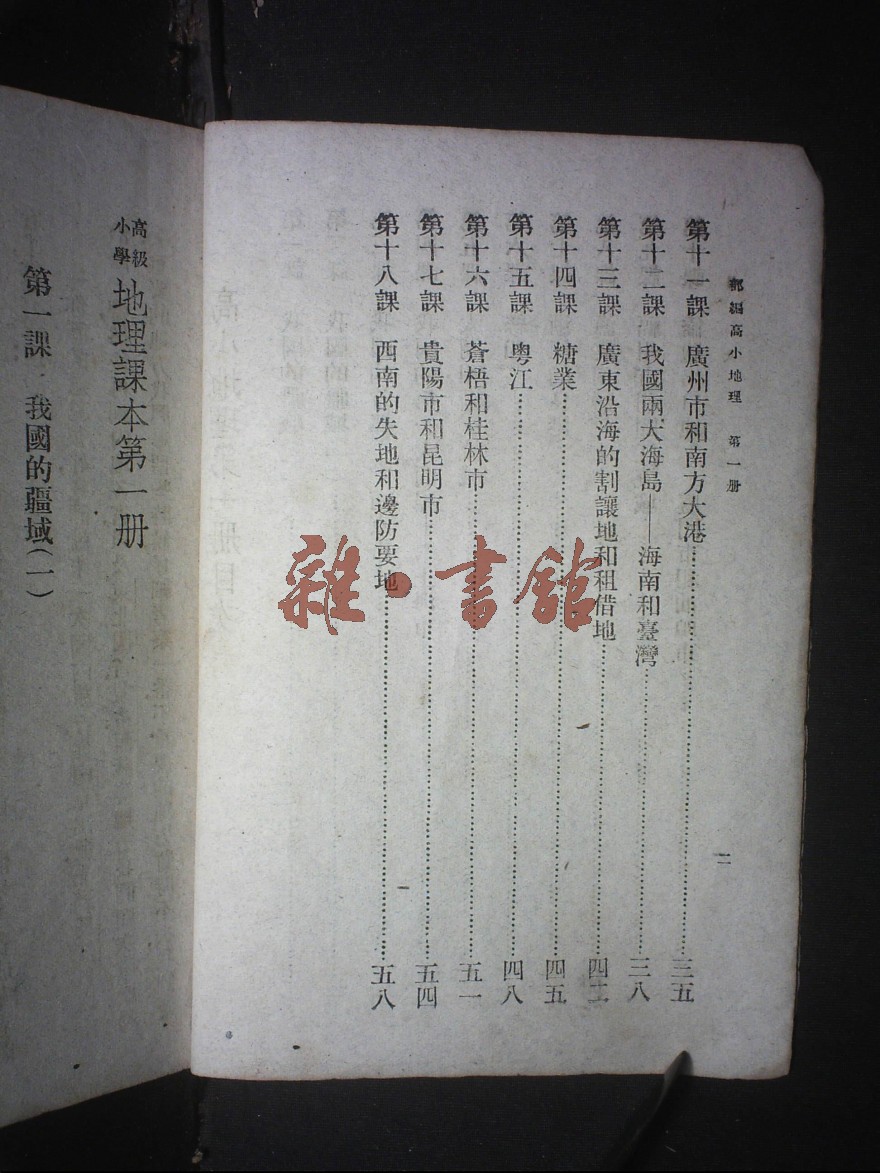 部編高小地理　第一册
二
第十一課　廣州市和南方大港……三五
第十二課　我國兩大海島——海南和臺灣……三八
第十三課　廣東沿海的割讓地和租借地……四二
第十四課　糖業……四五
第十五課　粵江……四八
第十六課　蒼梧和桂林市……五一
第十七課　貴陽市和昆明市……五四
第十八課　西南的失地和邊防要地……五八
高級小學地理課本第一册
第一課　我國的疆域（一）
雜·書館